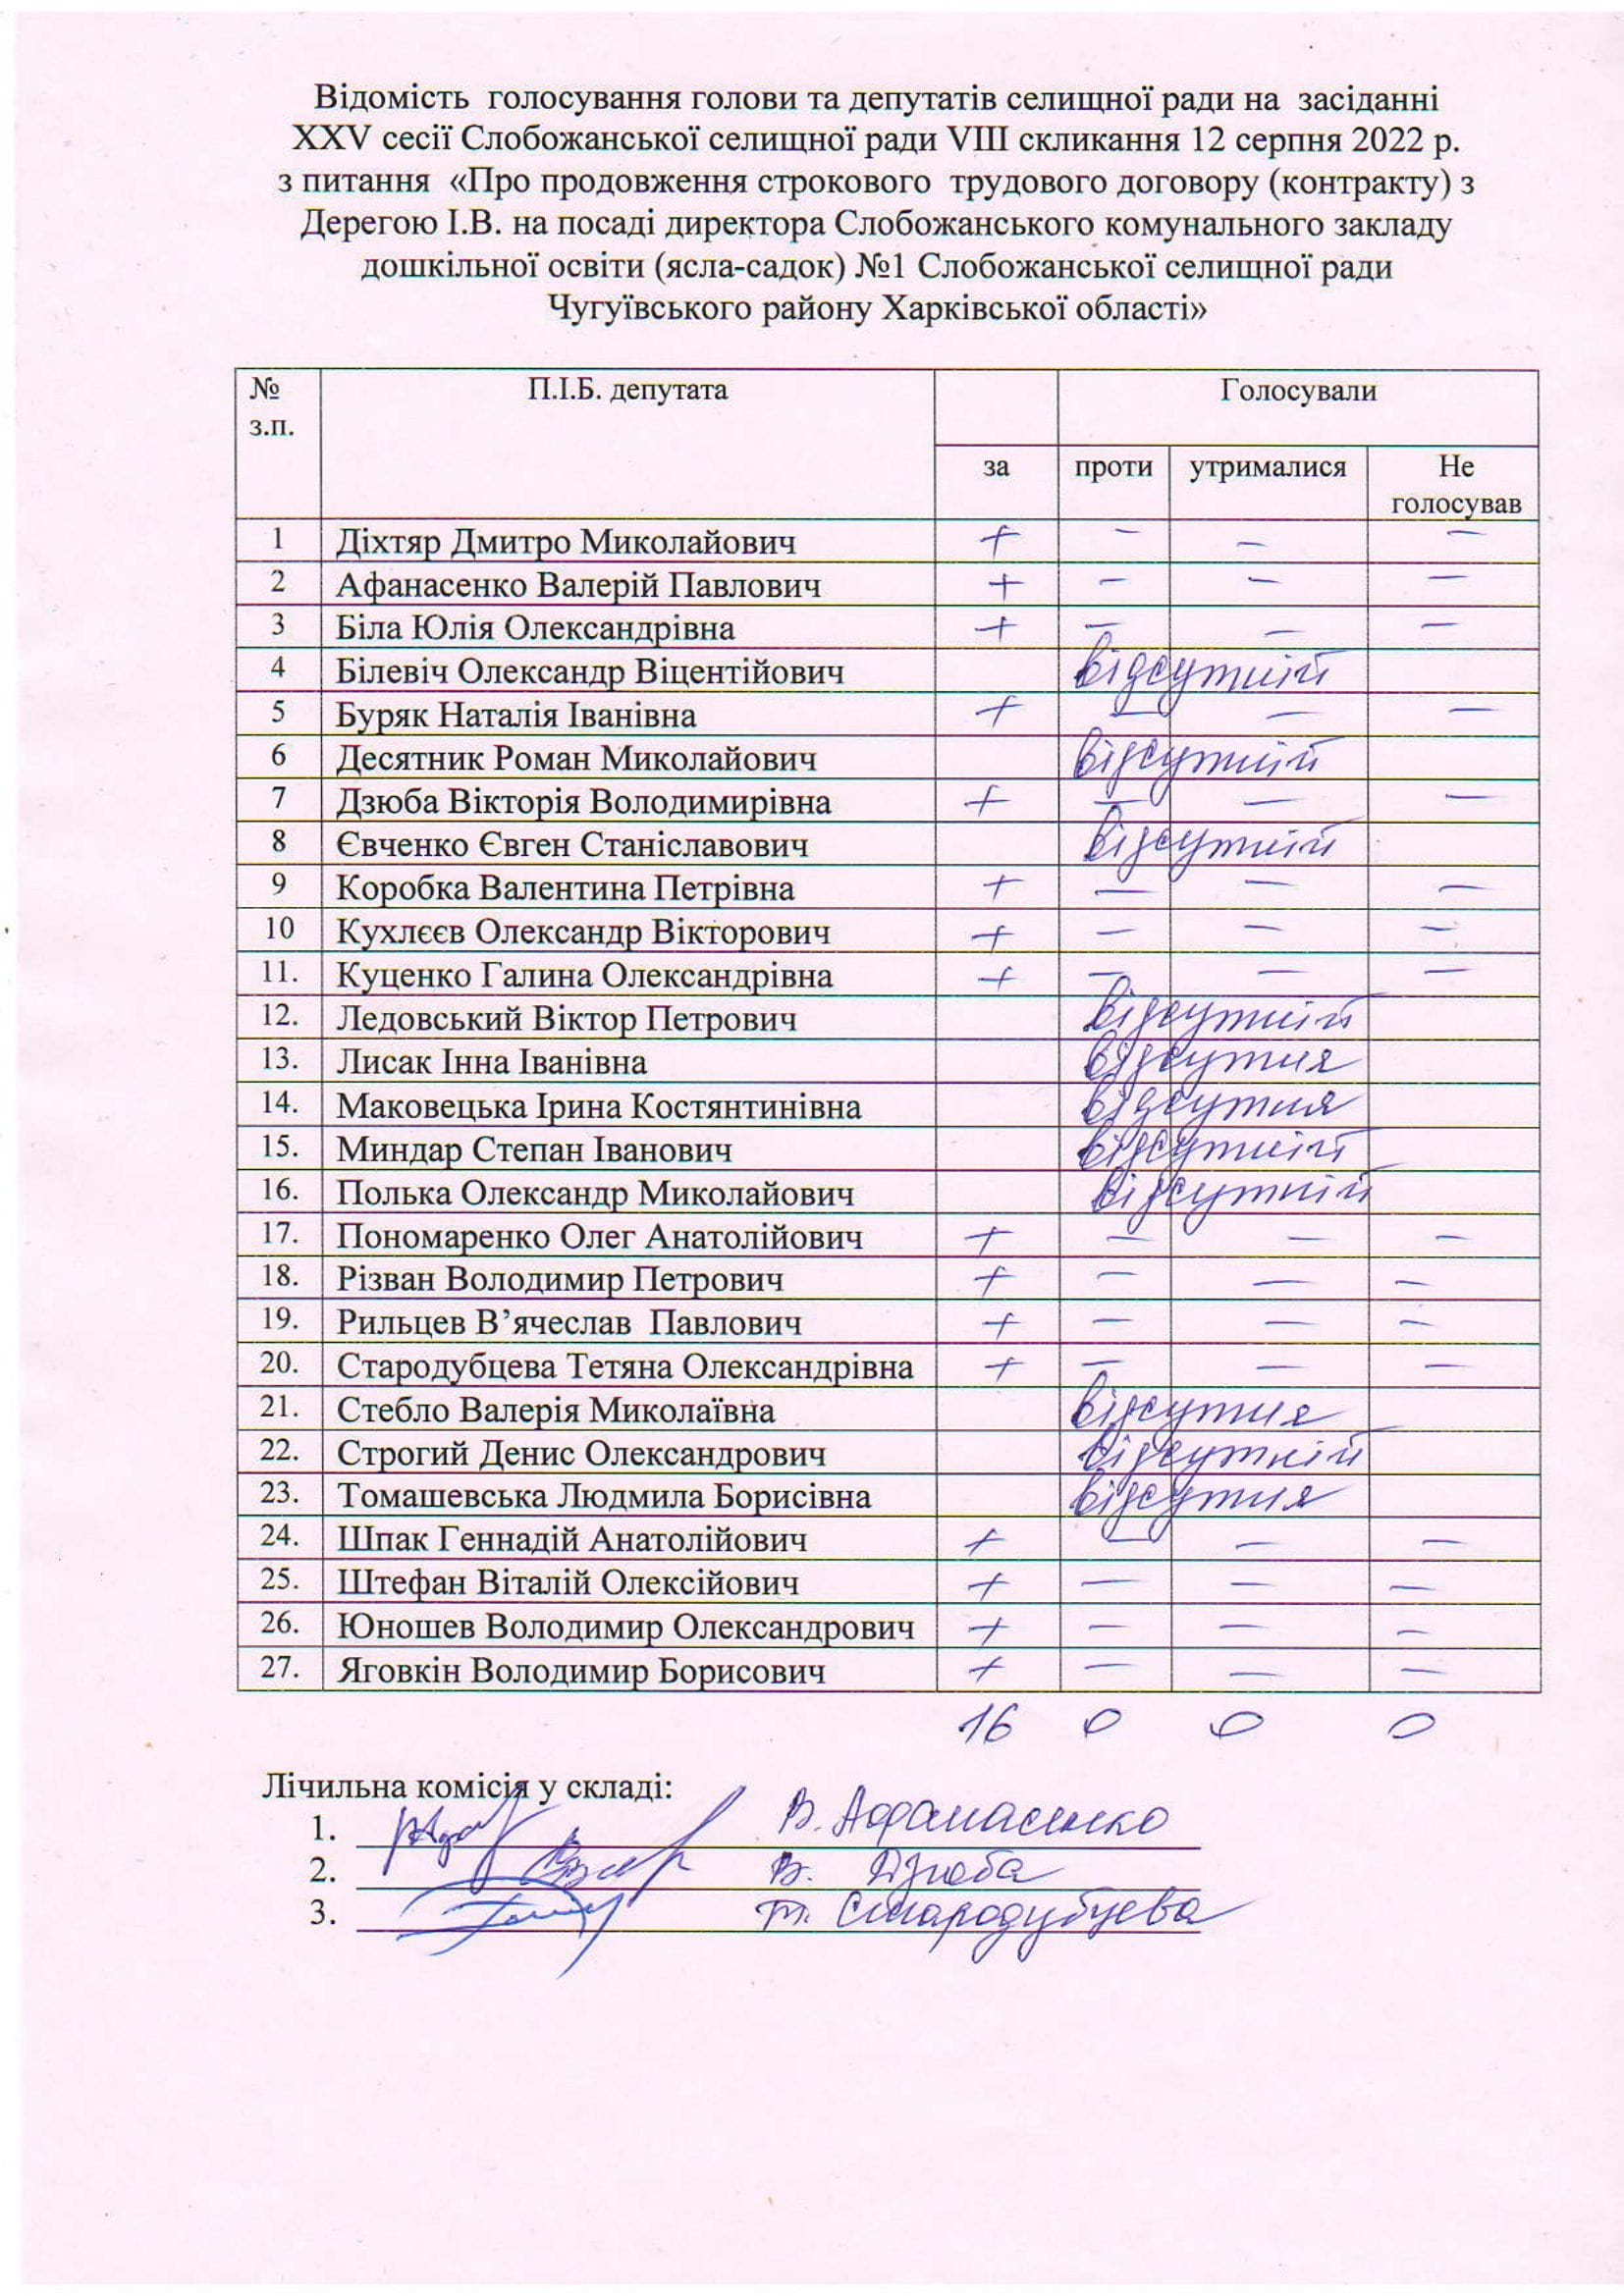 Відомість голосування голови та депутатів селищної ради на засіданні
XXV сесії Слобожанської селищної ради VIII скликання 12 серпня 2022 р.
з питання «Про продовження строкового трудового договору (контракту) з
Дерегою І.В. на посаді директора Слобожанського комунального закладу
дошкільної освіти (ясла-садок) №1 Слобожанської селищної ради
Чугуївського району Харківської області»
№ з.п. П.І.Б. депутата Голосували
за проти утрималися Не голосував
1 Діхтяр Дмитро Миколайович + – – –
2 Афанасенко Валерій Павлович + – – –
3 Біла Юлія Олександрівна + – – –
4 Білевіч Олександр Віцентійович відсутній
5 Буряк Наталія Іванівна + – – –
6 Десятник Роман Миколайович відсутній
7 Дзюба Вікторія Володимирівна + – – –
8 Євченко Євген Станіславович відсутній
9 Коробка Валентина Петрівна + – – –
10 Кухлєєв Олександр Вікторович + – – –
11. Куценко Галина Олександрівна + – – –
12. Ледовський Віктор Петрович відсутній
13. Лисак Інна Іванівна відсутня
14. Маковецька Ірина Костянтинівна відсутня
15. Миндар Степан Іванович відсутній
16. Полька Олександр Миколайович відсутній
17. Пономаренко Олег Анатолійович + – – –
18. Різван Володимир Петрович + – – –
19. Рильцев В’ячеслав Павлович + – – –
20. Стародубцева Тетяна Олександрівна + – – –
21. Стебло Валерія Миколаївна відсутня
22. Строгий Денис Олександрович відсутній
23. Томашевська Людмила Борисівна відсутня
24. Шпак Геннадій Анатолійович + – – –
25. Штефан Віталій Олексійович + – – –
26. Юношев Володимир Олександрович + – – –
27. Яговкін Володимир Борисович + – – –
16 0 0 0
Лічильна комісія у складі:
1. В. Афанасенко
2. В. Дзюба
3. Т. Стародубцева